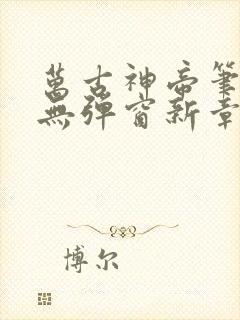 萬古神帝筆
無彈窗新章
博尔